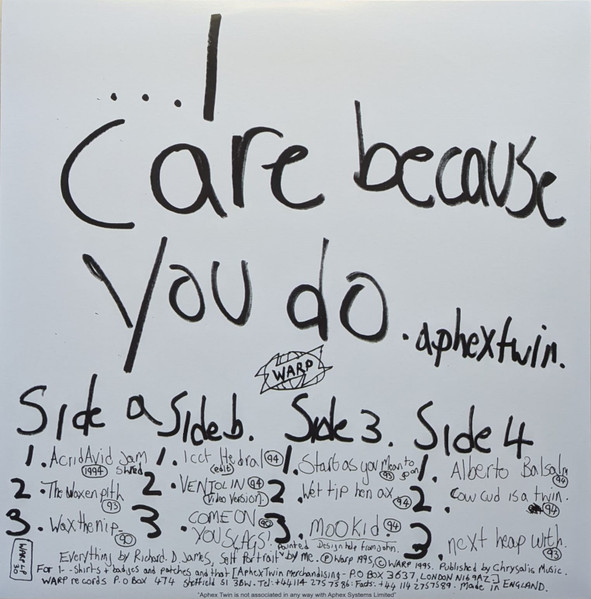 ...I
Care because
you do.
.aphextwin.
WARP
Side a
1. Acrid Avid Jam
1994 Shred
2. The Waxen pith
93
3. Wax the nip
90
Side b.
1. Icct Hedral 94
(edit)
2. VENTOLIN 94
(Video Version)
3. COME ON
YOU SLAGS!
90
Side 3.
1. Start as you Mean to
go on
93
2. Wet tip hen ax 94
3. MOOKid. 94
Side 4
1. Alberto Balsalm
94
2. Cow cud is a twin.
94
3. next heap with.
93
Everything by Richard. D James, Self Portrait painted by me. Design help from John. Ⓟ Warp 1995, © WARP 1995. Published by Chrysalis Music.
WARP LP 30
For T-Shirts & badges and patches and that [AphexTwin Merchandising - P.O BOX 3637, LONDON NI6 9AZ]
WARP records P.O BOX 474 Sheffield S1 3BW. Tel: +44 114 275 7586: Facs: +44 114 2757589. Made in ENGLAND.
"Aphex Twin is not associated in any way with Aphex Systems Limited"